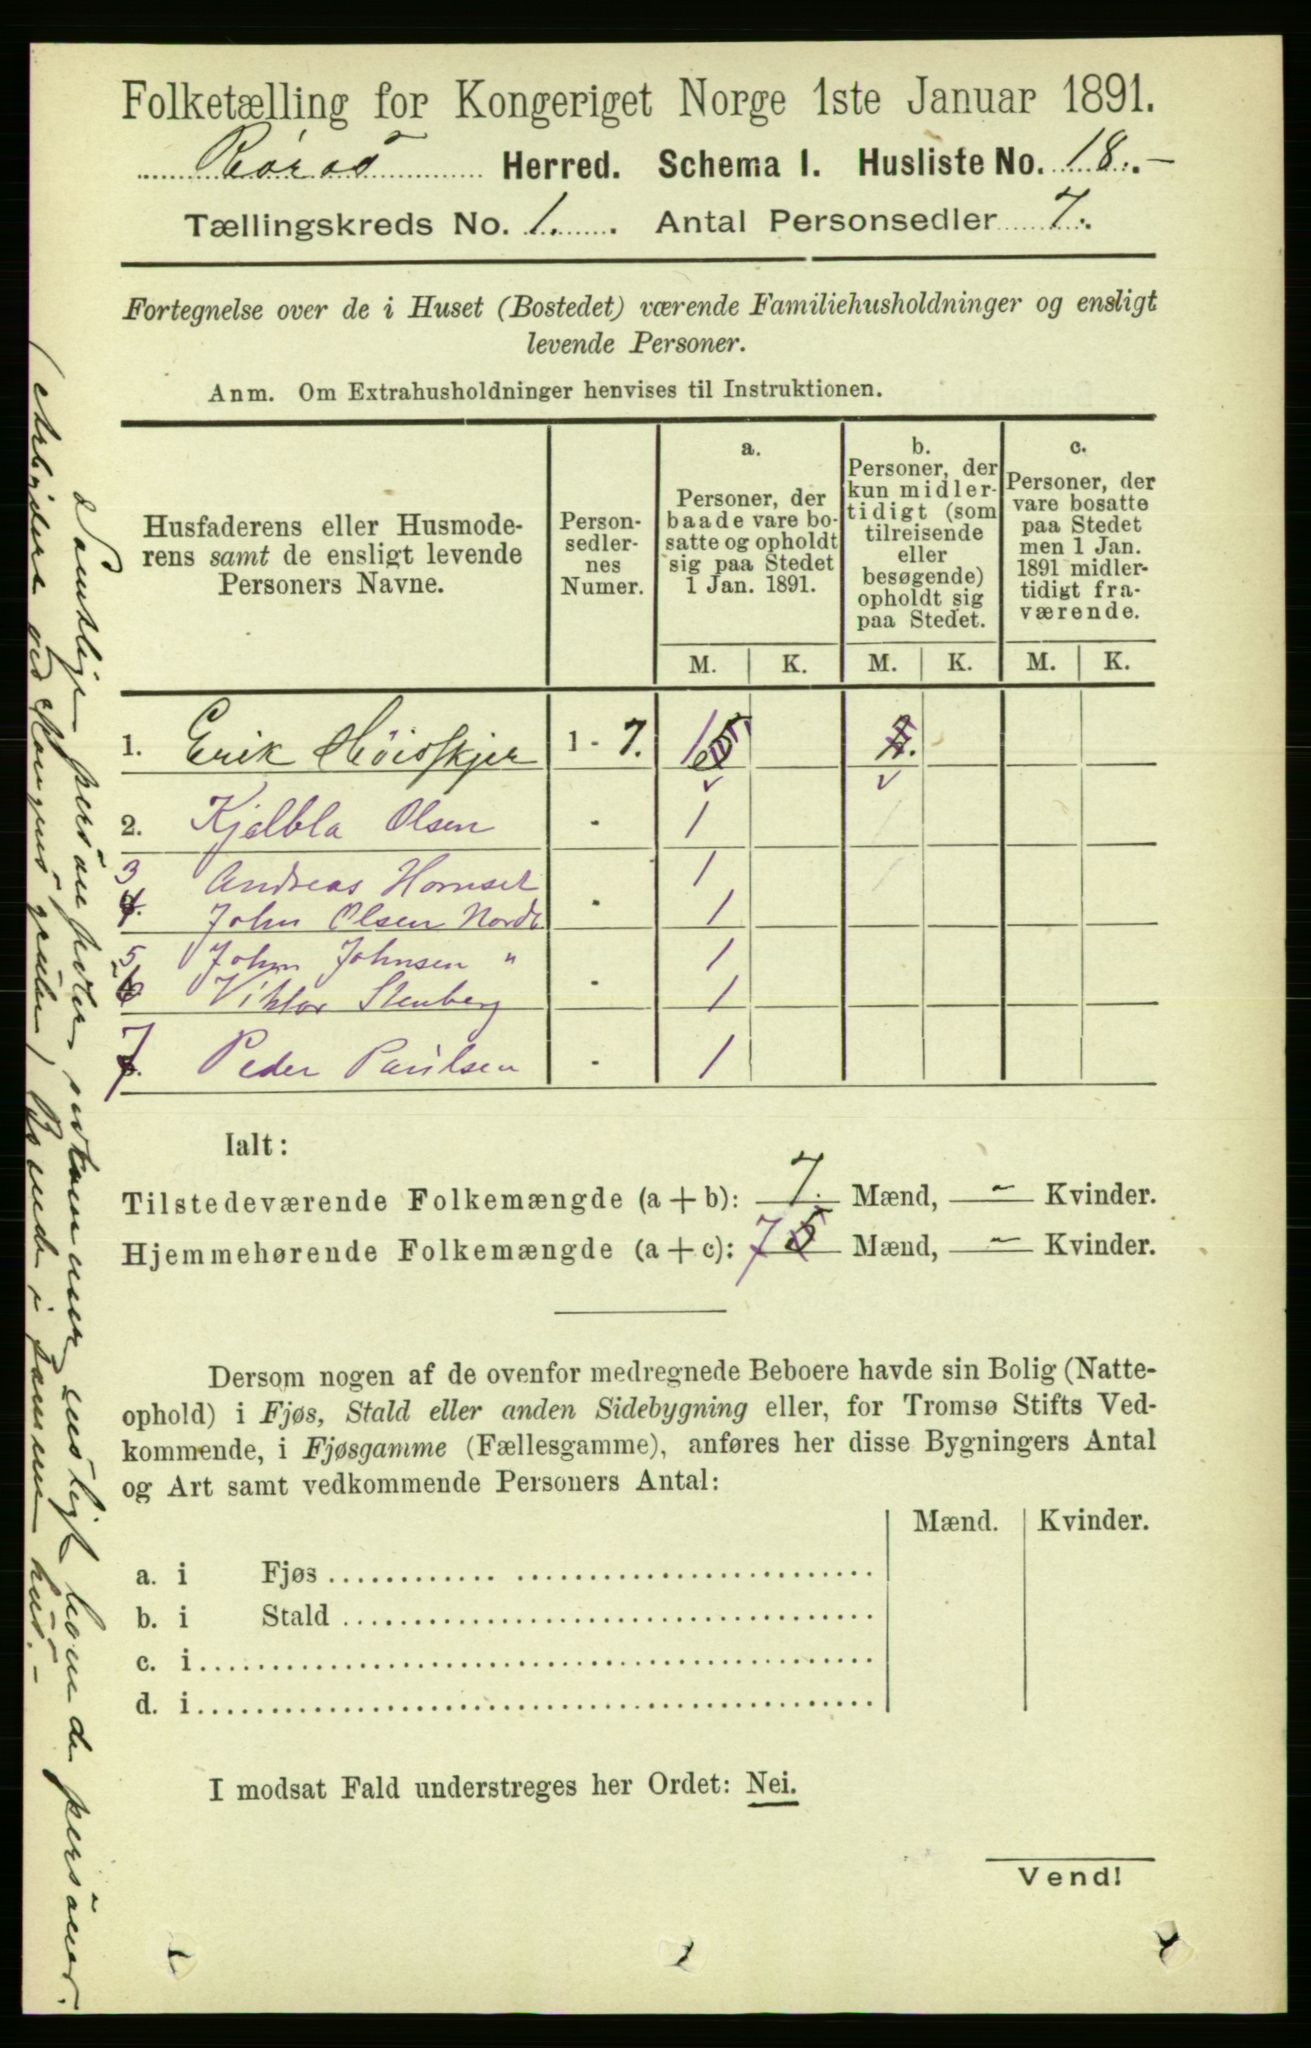 Folketælling for Kongeriget Norge 1ste Januar 1891.
Røros Herred. Schema I. Husliste No. 18. -
Tællingskreds No. 1. Antal Personsedler 7.
Fortegnelse over de i Huset (Bostedet) værende Familiehusholdninger og ensligt
levende Personer.
Anm. Om Extrahusholdninger henvises til Instruktionen.
Husfaderens eller Husmode-
rens samt de ensligt levende
Personers Navne.
Person-
sedler-
nes
Numer.
a.
Personer, der
baade vare bo-
satte og opholdt
sig paa Stedet
1 Jan. 1891.
b.
Personer, der
kun midler-
tidigt (som
tilreisende
eller
besøgende)
opholdt sig
paa Stedet.
c.
Personer, der
vare bosatte
paa Stedet
men 1 Jan.
1891 midler-
tidigt fra-
værende.
M. K. M. K. M. K.
1. Erik 1 - 7. 1
2. Kjelbla Olsen - 1
3 Andreas Hornset 1
4. John Olsen Nordb - 1
5 John Johnsen " 1
6 Viktor Stenberg - 1
7. Peder Paulsen - 1
Ialt:
Tilstedeværende Folkemængde (a + b): 7. Mænd, - Kvinder.
Hjemmehørende Folkemængde (a + c): 7 5 Mænd, - Kvinder.
Dersom nogen af de ovenfor medregnede Beboere havde sin Bolig (Natte-
ophold) i Fjøs, Stald eller anden Sidebygning eller, for Tromsø Stifts Ved-
kommende, i Fjøsgamme (Fællesgamme), anføres her disse Bygningers Antal
og Art samt vedkommende Personers Antal:
Mænd. Kvinder.
a. i Fjøs
b. i Stald
c. i
d. i
I modsat Fald understreges her Ordet: Nei.
Vend!
Samtlige personer vedkommer ensligt boende personer.
(Arbeidere ved Kongens grube) Boende i samme hus. -